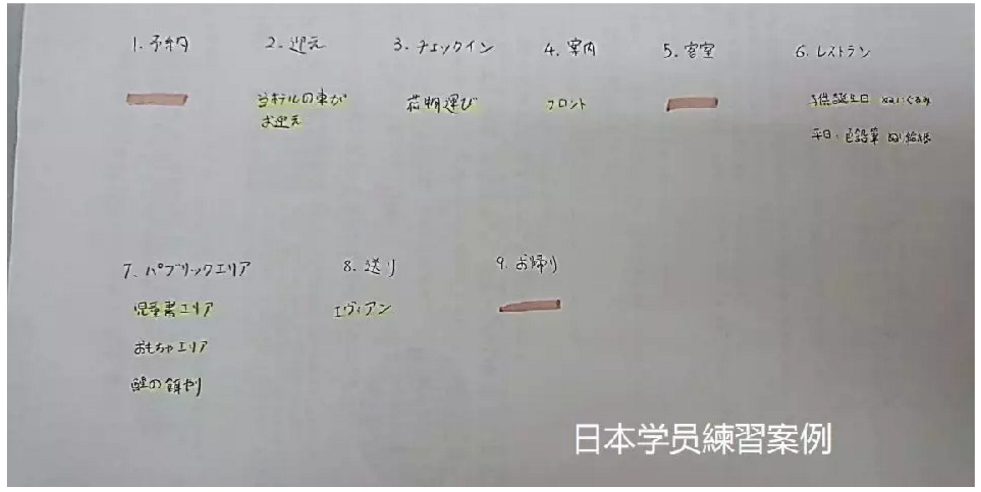 1. 予約
2. 迎え
3. チェックイン
4. 案内
5. 客室
6. レストラン
当ホテルの車が
お迎え
荷物運び
フロント
子供誕生日 ぬいぐるみ
平日:色鉛筆 ぬり絵紙
7. パブリックエリア
8. 送り
9. お帰り
児童書エリア
おもちゃエリア
鯉の餌やり
エヴィアン
日本学员練習案例